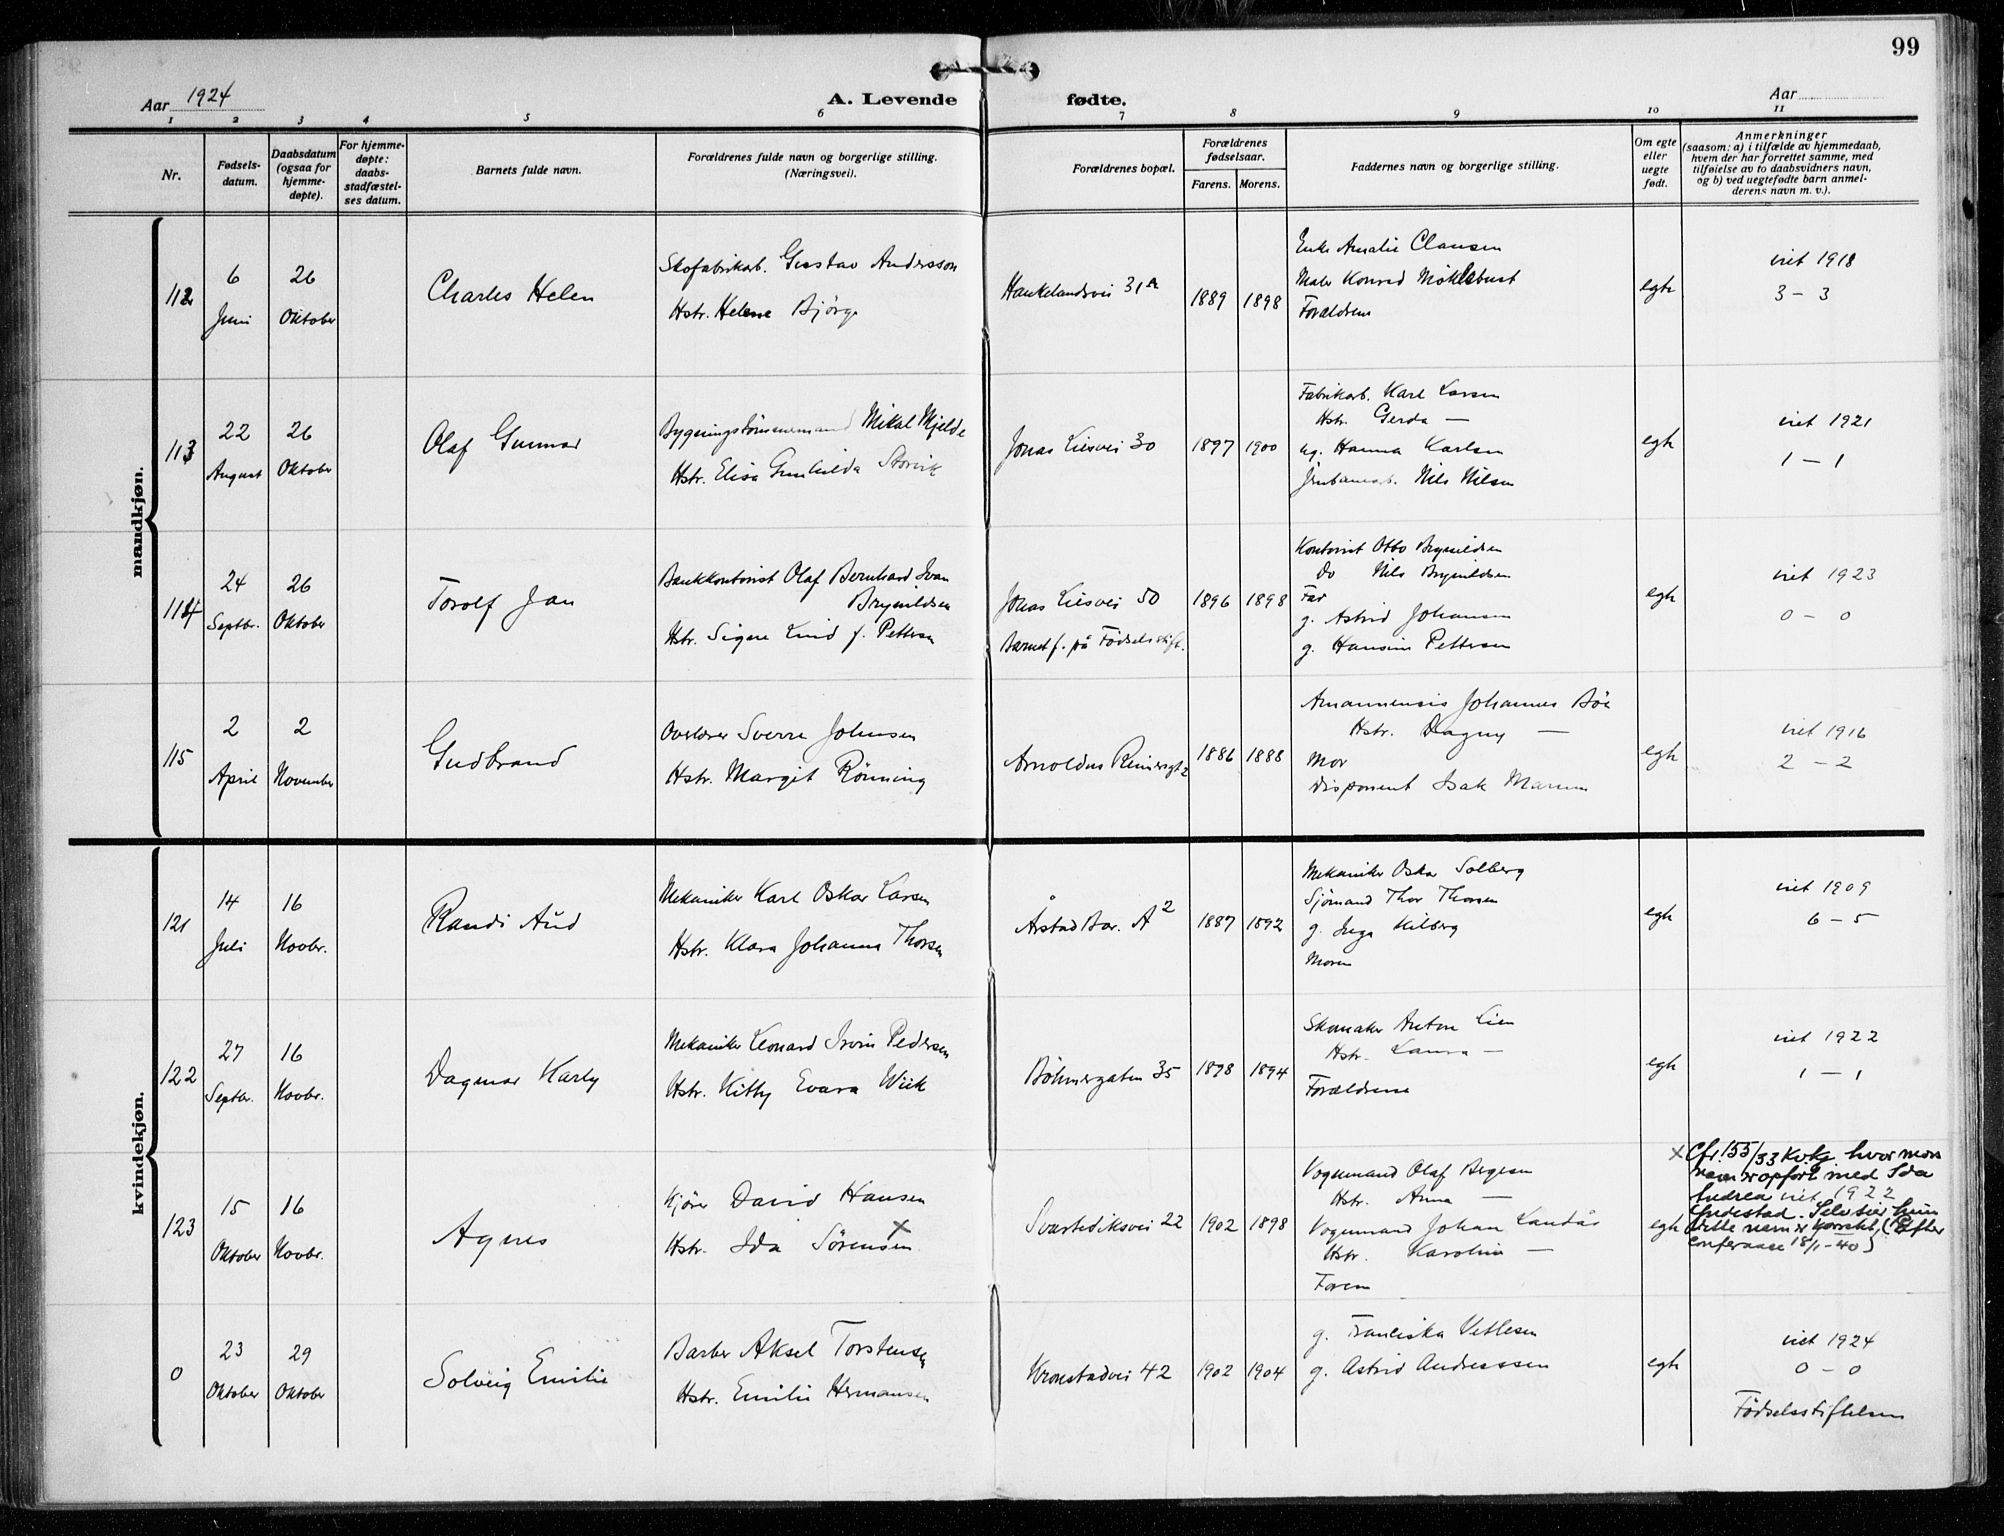 99
Aar 1924
A. Levende fødte.
Aar
1 2 3 4 5 6 7 8 9 10 11
Nr.
Fødsels-
datum.
Daabsdatum
(ogsaa for
hjemme-
døpte).
For hjemme-
døpte:
daabs-
stadfæstel-
ses datum.
Barnets fulde navn.
Forældrenes fulde navn og borgerlige stilling.
(Næringsvei).
Forældrenes bopæl.
Forældrenes
fødselsaar.
Farens. Morens.
Faddernes navn og borgerlige stilling.
Om egte
eller
uegte
født.
Anmerkninger
(saasom: a) i tilfælde av hjemmedaab,
hvem der har forrettet samme, med
tilføielse av to daabsvidners navn,
og b) ved uegtefødte barn anmel-
derens navn m. v.).
mandkjøn.
112
6
Juni
26
Oktober
Charles Helen
Skofabrikarb. Gustav Andersson
Hstr. Helene Bjørge
Haukelandsvei 31A
1889 1898
Enke Amalie Clausen
Maler Konrad Møklebust
Forældrene
egte
viet 1918
3 - 3
113
22
August
26
Oktober
Olaf Gunnar
Bygningstømmermand Mikal Mjelde
Hstr. Elisa Gunhilda Storvik
Jonas Liesvei 30
1897 1900
Fabrikarb. Karl Larsen
Hstr. Gerda —
ug. Hanna Karlsen
Jernbanearb. Nils Nilsen
egte
viet 1921
1 - 1
114
24
Septbr.
26
Oktober
Torolf Jan
Bankkontorist Olaf Bernhard Ivan
Brynildsen
Hstr. Signe Lind f. Pettersen
Jonas Liesvei 50
Barnet f. på Fødselsstift.
1896 1898
Kontorist Otto Brynildsen
Do Nils Brynildsen
Far
g. Astrid Johansen
g. Hansine Pettersen
egte
viet 1923
0 - 0
115
2
April
2
November
Gudbrand
Overlærer Sverre Johnsen
Hstr. Margit Rønning
Arnoldus Reimersgt 2
1886 1888
Amanuensis Johannes Bøe
Hstr. Dagny —
Mor
Disponent Isak
egte
viet 1916
2 - 2
kvindekjøn.
121
14
Juli
16
Novbr.
Randi Aud
Mekaniker Karl Oskar Larsen
Hstr. Klara Johanna Thorsen
Årstad Bar. A2
1887 1892
Mekaniker Oskar Solberg
Sjømand Thor Thorsen
g. Inga Kilberg
Moren
egte
viet 1909
6 - 5
122
27
Septbr.
16
Novbr.
Dagmar Karly
Mekaniker Leonard Irvin Pedersen
Hstr. Kitty Evara Wiik
Bøhmergaten 35
1898 1894
Skomaker Anton Lien
Hstr. Laura —
Forældrene
egte
viet 1922
1 - 1
123
15
Oktober
16
Novbr.
Agnes
Kjører David Hansen
Hstr. Ida Sørensen x
Svartediksvei 22
1902 1898
Vognmand Olaf Bergesen
Hstr. Anna —
Vognmand Johan Landås
Hstr. Karoline —
Faren
egte
x Cfr. 155/33 Kvkj. hvor mors
navn er opført med Ida
Andrea viet 1922
Selv sier hun
dette navn er korrekt, (Efter
conferanse 18/1-40)
0
23
Oktober
29
Oktober
Solveig Emilie
Barber Aksel Torstensen
Hstr. Emilie Hermansen
Kronstadvei 42
1902 1904
g. Franciska Vetlesen
g. Astrid Andreassen
egte
viet 1924
0 - 0
Fødselsstiftelsen